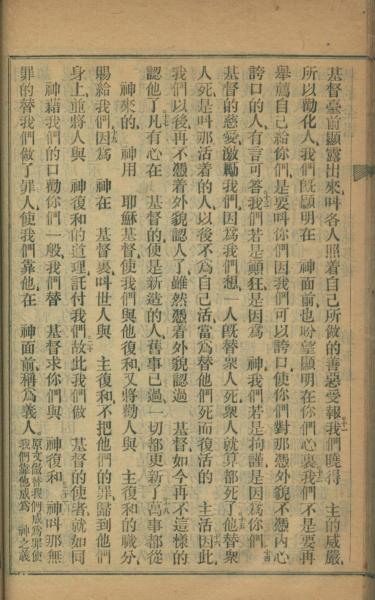 基督臺前顯露出來、叫各人照着自己所做的善惡受報我們曉得 主的威嚴、
所以勸化人、我們旣顯明在 神面前、也盼望顯明在你們心裏我們不是要再
舉薦自己給你們、是要叫你們因我們可以誇口、使你們對那憑外貌不憑內心
誇口的人、有言可答我們若是顚狂是因爲 神、我們若是拘謹是因爲你們
基督的慈愛激勵我們、因爲我們想一人旣替衆人死、衆人就算都死了他替衆
人死、是叫那活着的人、以後不爲自己活、當爲替他們死而復活的 主活因此
我們以後再不憑着外貌認人了、雖然憑着外貌認過 基督、如今再不這樣的
認他了凡有心在 基督的、便是新造的人、舊事已過一切都更新了萬事都從
神來的、 神用 耶穌基督、使我們與他復和、又將勸人與 主復和的職分
賜給我們因爲 神在 基督裏叫世人與 主復和、不把他們的罪歸到他們
身上、並將人與 神復和的道理託付我們故此我們做 基督的使者就如同
神藉我們的口勸你們一般、我們替 基督求你們與 神復和 神叫那無
罪的替我們做了罪人、使我們靠他在 神面前稱爲義人原文做替我們成爲罪使
我們靠他成爲 神之義